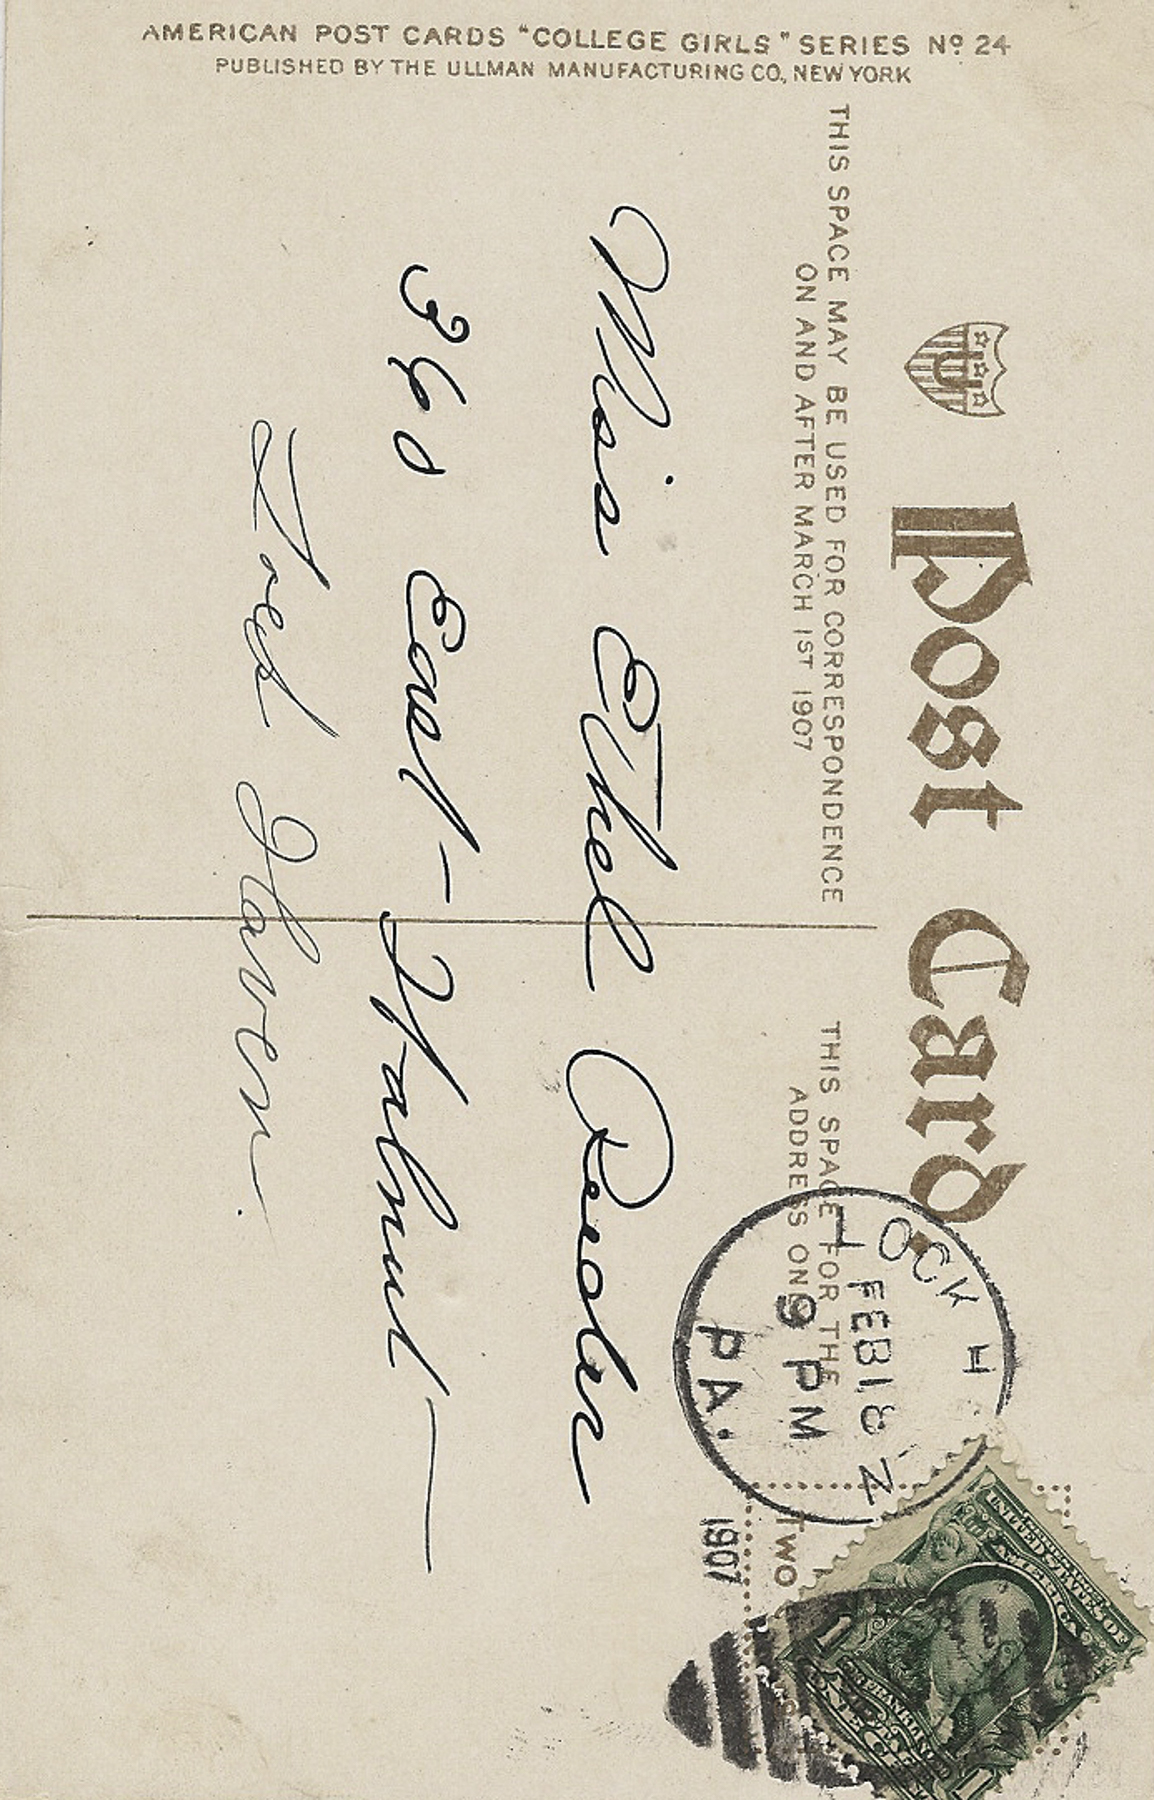 AMERICAN POST CARDS "COLLEGE GIRLS" SERIES Nº 24
PUBLISHED BY THE ULLMAN MANUFACTURING CO., NEW YORK
Post Card
THIS SPACE MAY BE USED FOR CORRESPONDENCE
ON AND AFTER MARCH 1ST 1907
THIS SPACE FOR THE
ADDRESS ONLY
LOCK H
FEB 18
9 PM
PA.
1907
TWO
UNITED STATES OF
AMERICA
FRANKLIN
ONE
1
1
Miss Ethel
360 East Walnut
Haven.